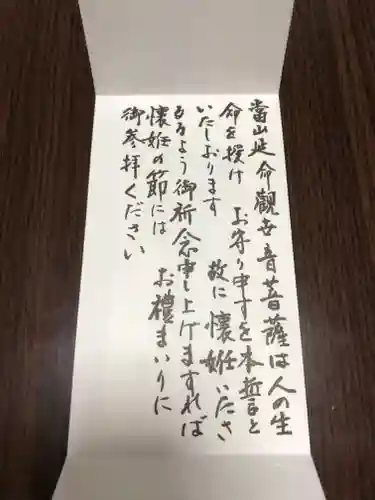 當山延命觀世音菩薩は人の生
命を授け お守り申すを本誓と
いたしおります 故に懐姙いたさ
るるよう御祈念申し上げますれば
懐姙の節には お禮まいりに
御参拝ください